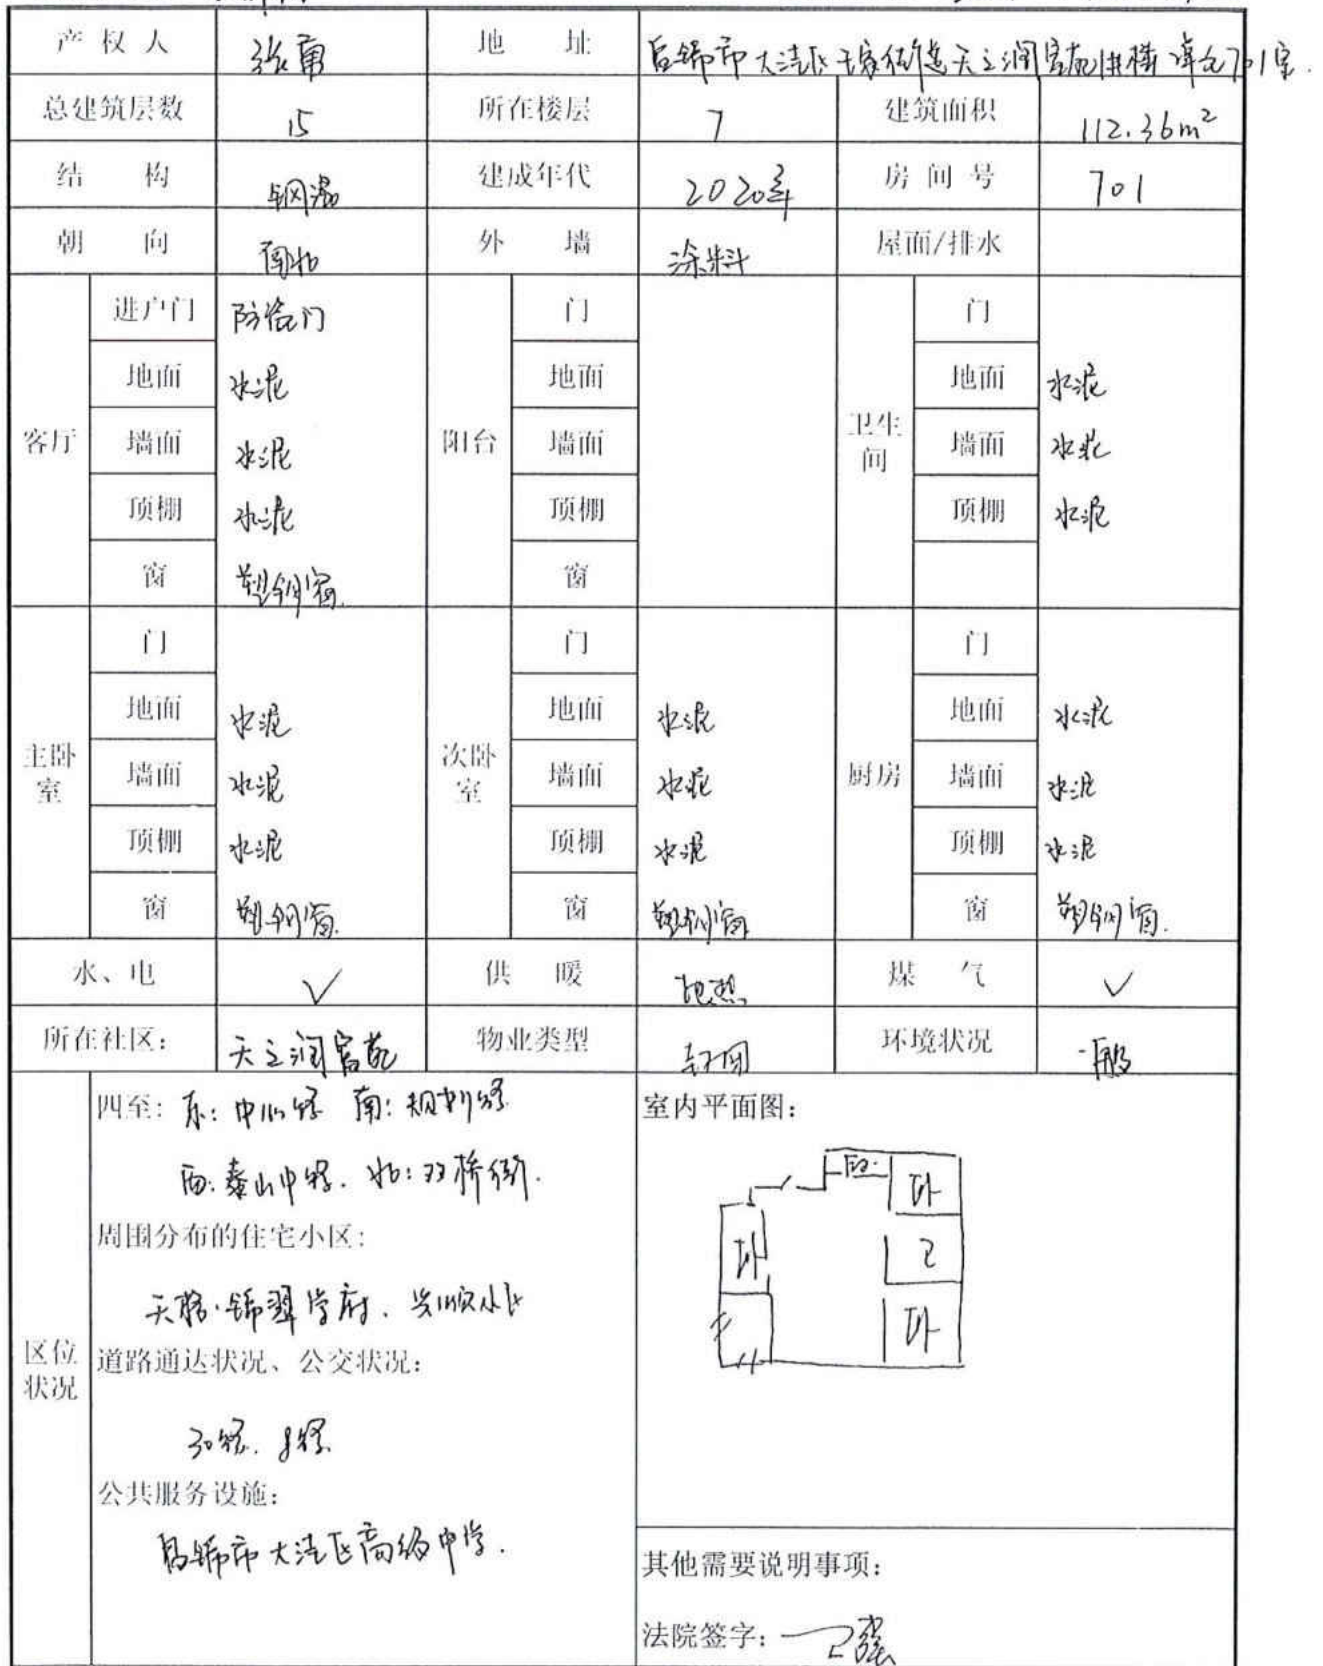 产权人 张甫 地址 盘锦市大洼区王家街道天之润富苑1#楼 单元701室.
总建筑层数 15 所在楼层 7 建筑面积 112.36m²
结构 钢混 建成年代 2020年 房间号 701
朝向 南北 外墙 涂料 屋面/排水
客厅 进户门 防盗门 阳台 门 卫生间 门
地面 水泥 地面 地面 水泥
墙面 水泥 墙面 墙面 水泥
顶棚 水泥 顶棚 顶棚 水泥
窗 塑钢窗. 窗
主卧室 门 次卧室 门 厨房 门
地面 水泥 地面 水泥 地面 水泥
墙面 水泥 墙面 水泥 墙面 水泥
顶棚 水泥 顶棚 水泥 顶棚 水泥
窗 塑钢窗. 窗 塑钢窗 窗 塑钢窗.
水、电 ✓ 供暖 地热 煤气 ✓
所在社区: 天之润富苑 物业类型 封闭 环境状况 一般
区位状况
四至: 东: 中心路 南: 规划路
西: 泰山中路. 北: 双桥街.
周围分布的住宅小区:
天格·锦翠学府. 兴顺小区
道路通达状况、公交状况:
30路. 8路.
公共服务设施:
盘锦市大洼区高级中学.
室内平面图:
卧
卧 卫
卧
其他需要说明事项:
法院签字: